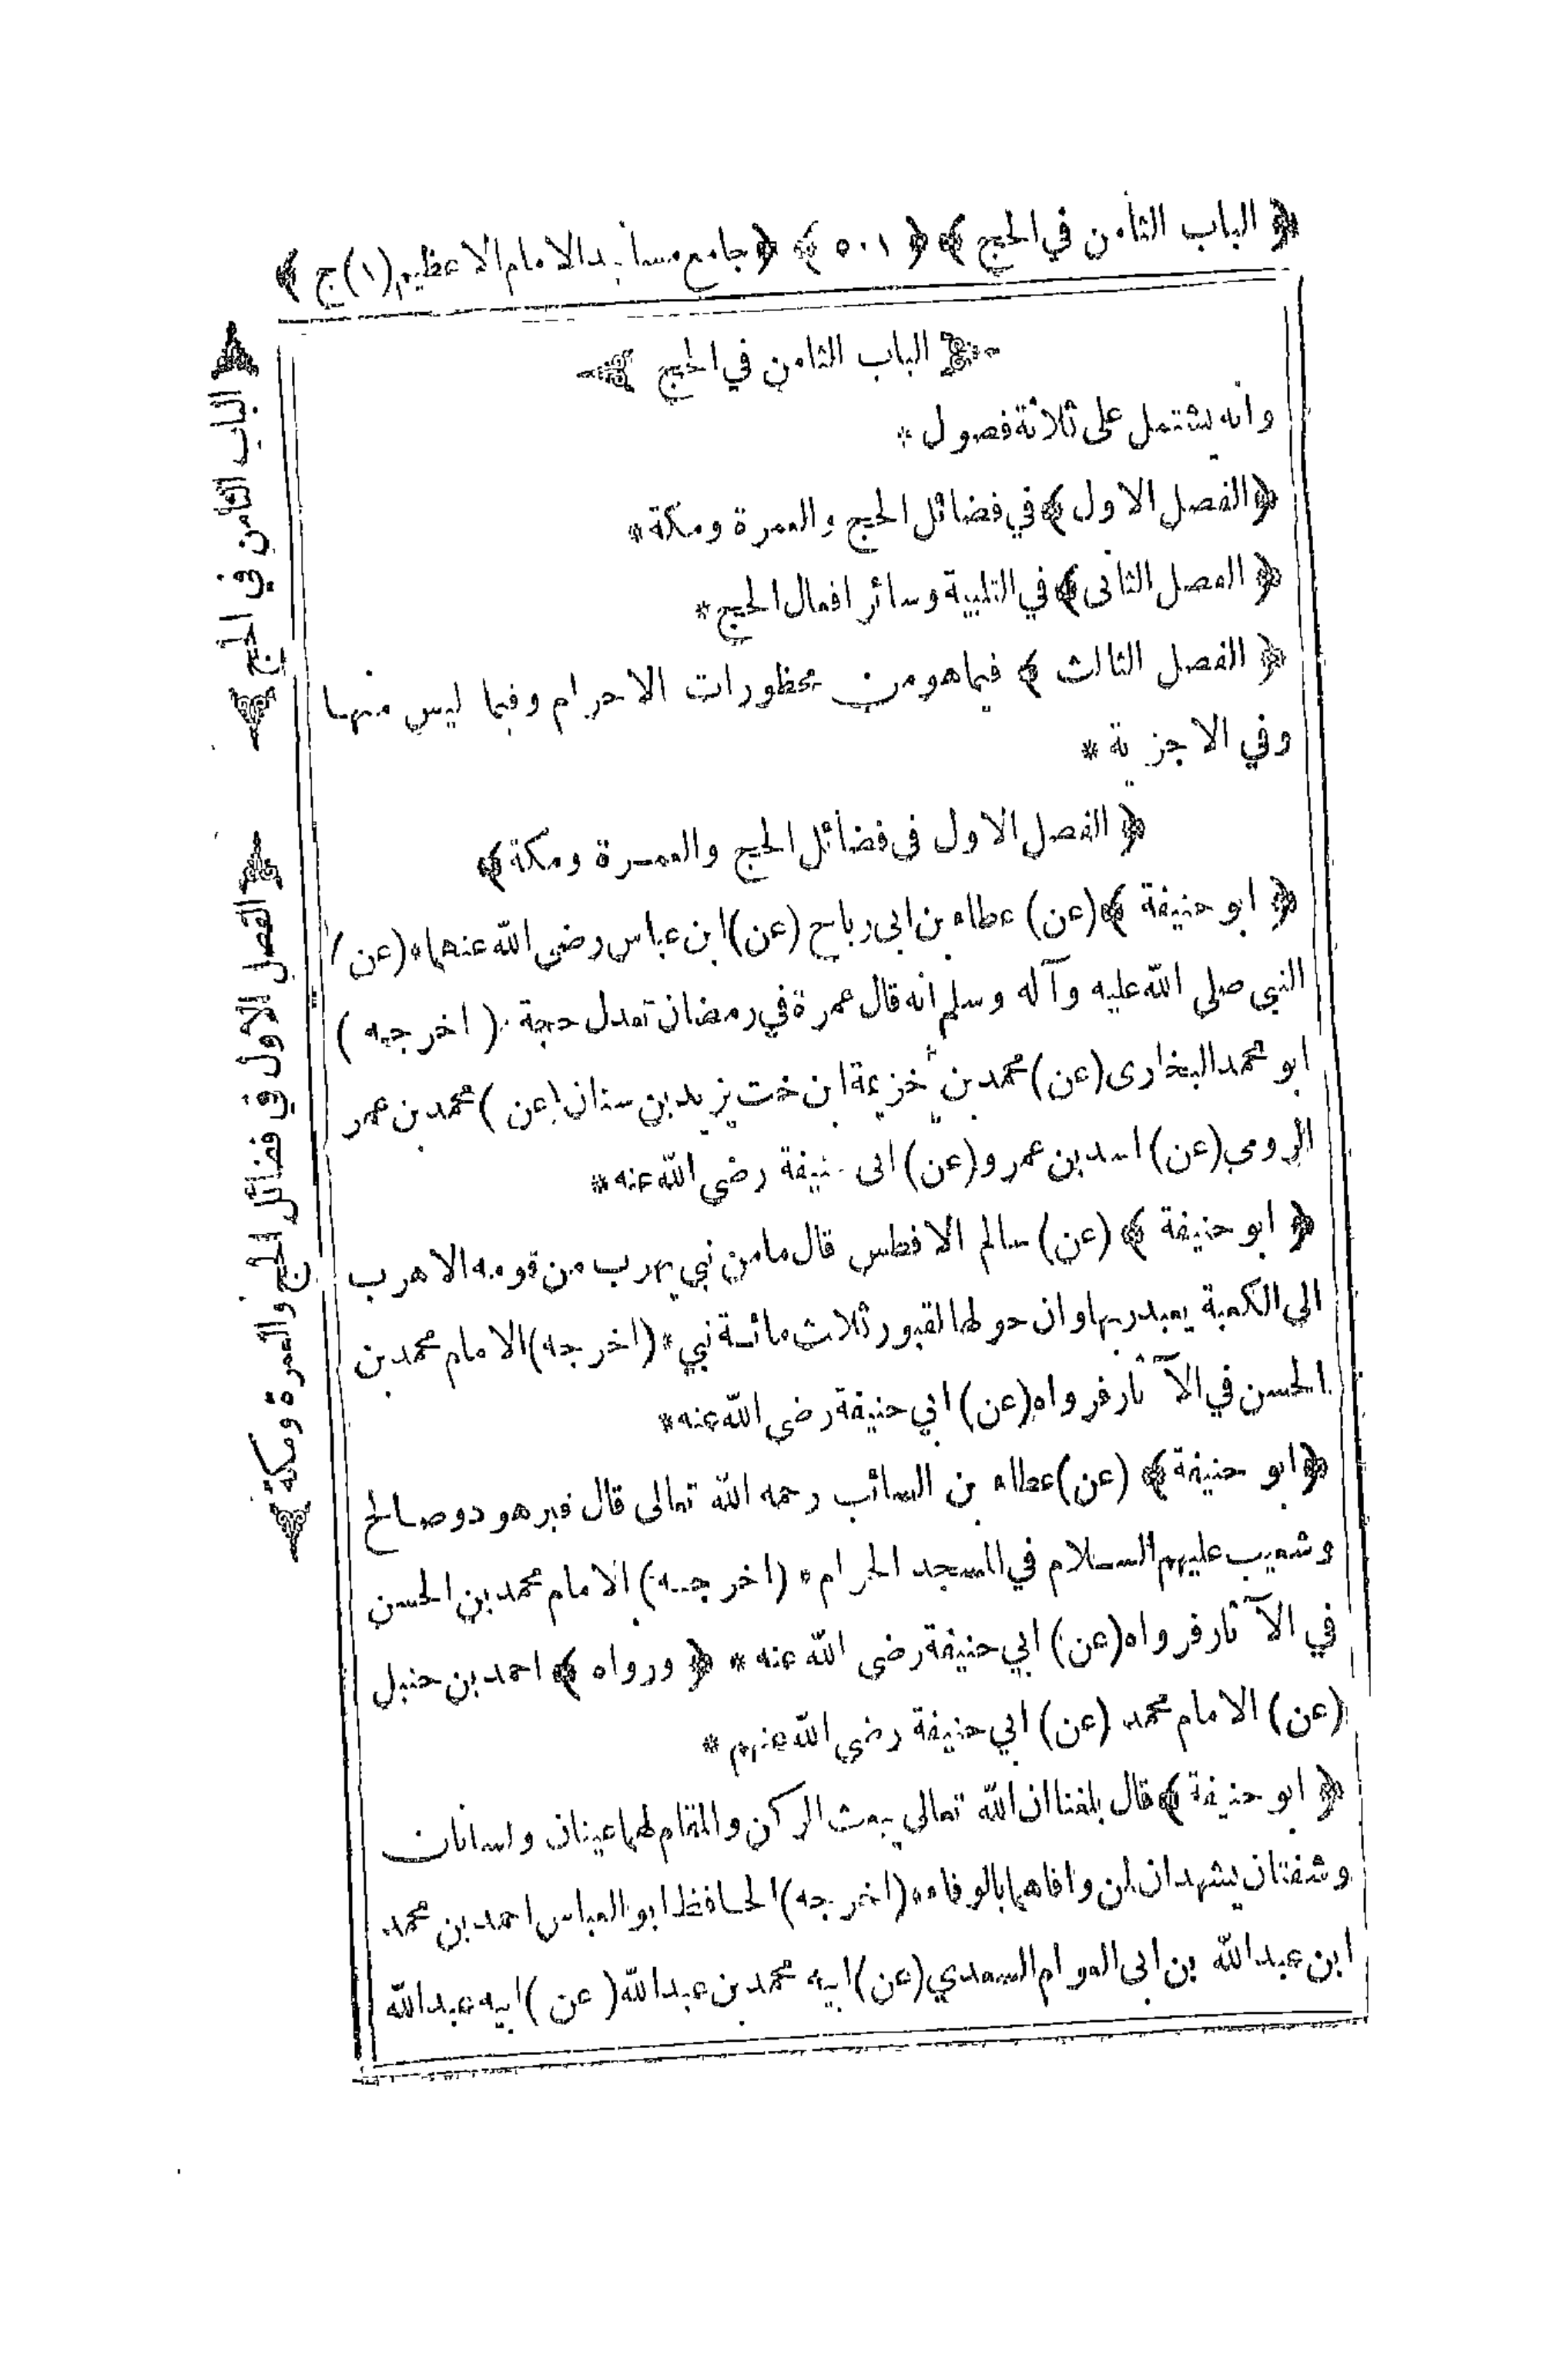 ﴿ الباب الثامن في الحج ﴾ ﴿ ٥٠١ ﴾ ﴿ جامع مسانيد الامام الاعظم (١) ج ﴾
﴿ الباب الثامن في الحج ﴾
وانه يشتمل على ثلاثة فصول *
﴿ الفصل الاول ﴾ في فضائل الحج والعمرة ومكة *
﴿ الفصل الثانى ﴾ في التلبية وسائر افعال الحج *
﴿ الفصل الثالث ﴾ فيما هو من محظورات الاحرام وفيما ليس منها
وفي الاجزية *
﴿ الفصل الاول فى فضائل الحج والعمرة ومكة ﴾
﴿ ابو حنيفة ﴾ (عن) عطاء بن ابى رباح (عن) ابن عباس رضى الله عنهما * (عن)
النبى صلى الله عليه وآله وسلم انه قال عمرة في رمضان تعدل حجة * (اخرجه)
ابو محمد البخارى (عن) محمد بن خزيمة ابن خت يزيد بن سنان (عن) محمد بن عمر
الرومى (عن) اسد بن عمرو (عن) ابى حنيفة رضى الله عنه *
﴿ ابو حنيفة ﴾ (عن) سالم الافطس قال ما من نبي يهرب من قومه الا هرب
الى الكعبة يعبد ربها وان حولها لقبور ثلاث مائة نبي * (اخرجه) الامام محمد بن
الحسن في الآثار فرواه (عن) ابي حنيفة رضى الله عنه *
﴿ ابو حنيفة ﴾ (عن) عطاء بن السائب رحمه الله تعالى قال قبر هود وصالح
وشعيب عليهم السلام في المسجد الحرام * (اخرجه) الامام محمد بن الحسن
في الآثار فرواه (عن) ابي حنيفة رضى الله عنه * ﴿ ورواه ﴾ احمد بن حنبل
(عن) الامام محمد (عن) ابي حنيفة رضى الله عنهم *
﴿ ابو حنيفة ﴾ قال بلغنا ان الله تعالى يبعث الركن والمقام لهما عينان ولسانان
وشفتان يشهدان لمن وافاهما بالوفاء * (اخرجه) الحافظ ابو العباس احمد بن محمد
ابن عبد الله بن ابى العوام السعدي (عن) ابيه محمد بن عبد الله (عن) ابيه عبد الله
﴿ الباب الثامن في الحج ﴾
﴿ الفصل الاول في فضائل الحج والعمرة ومكة ﴾